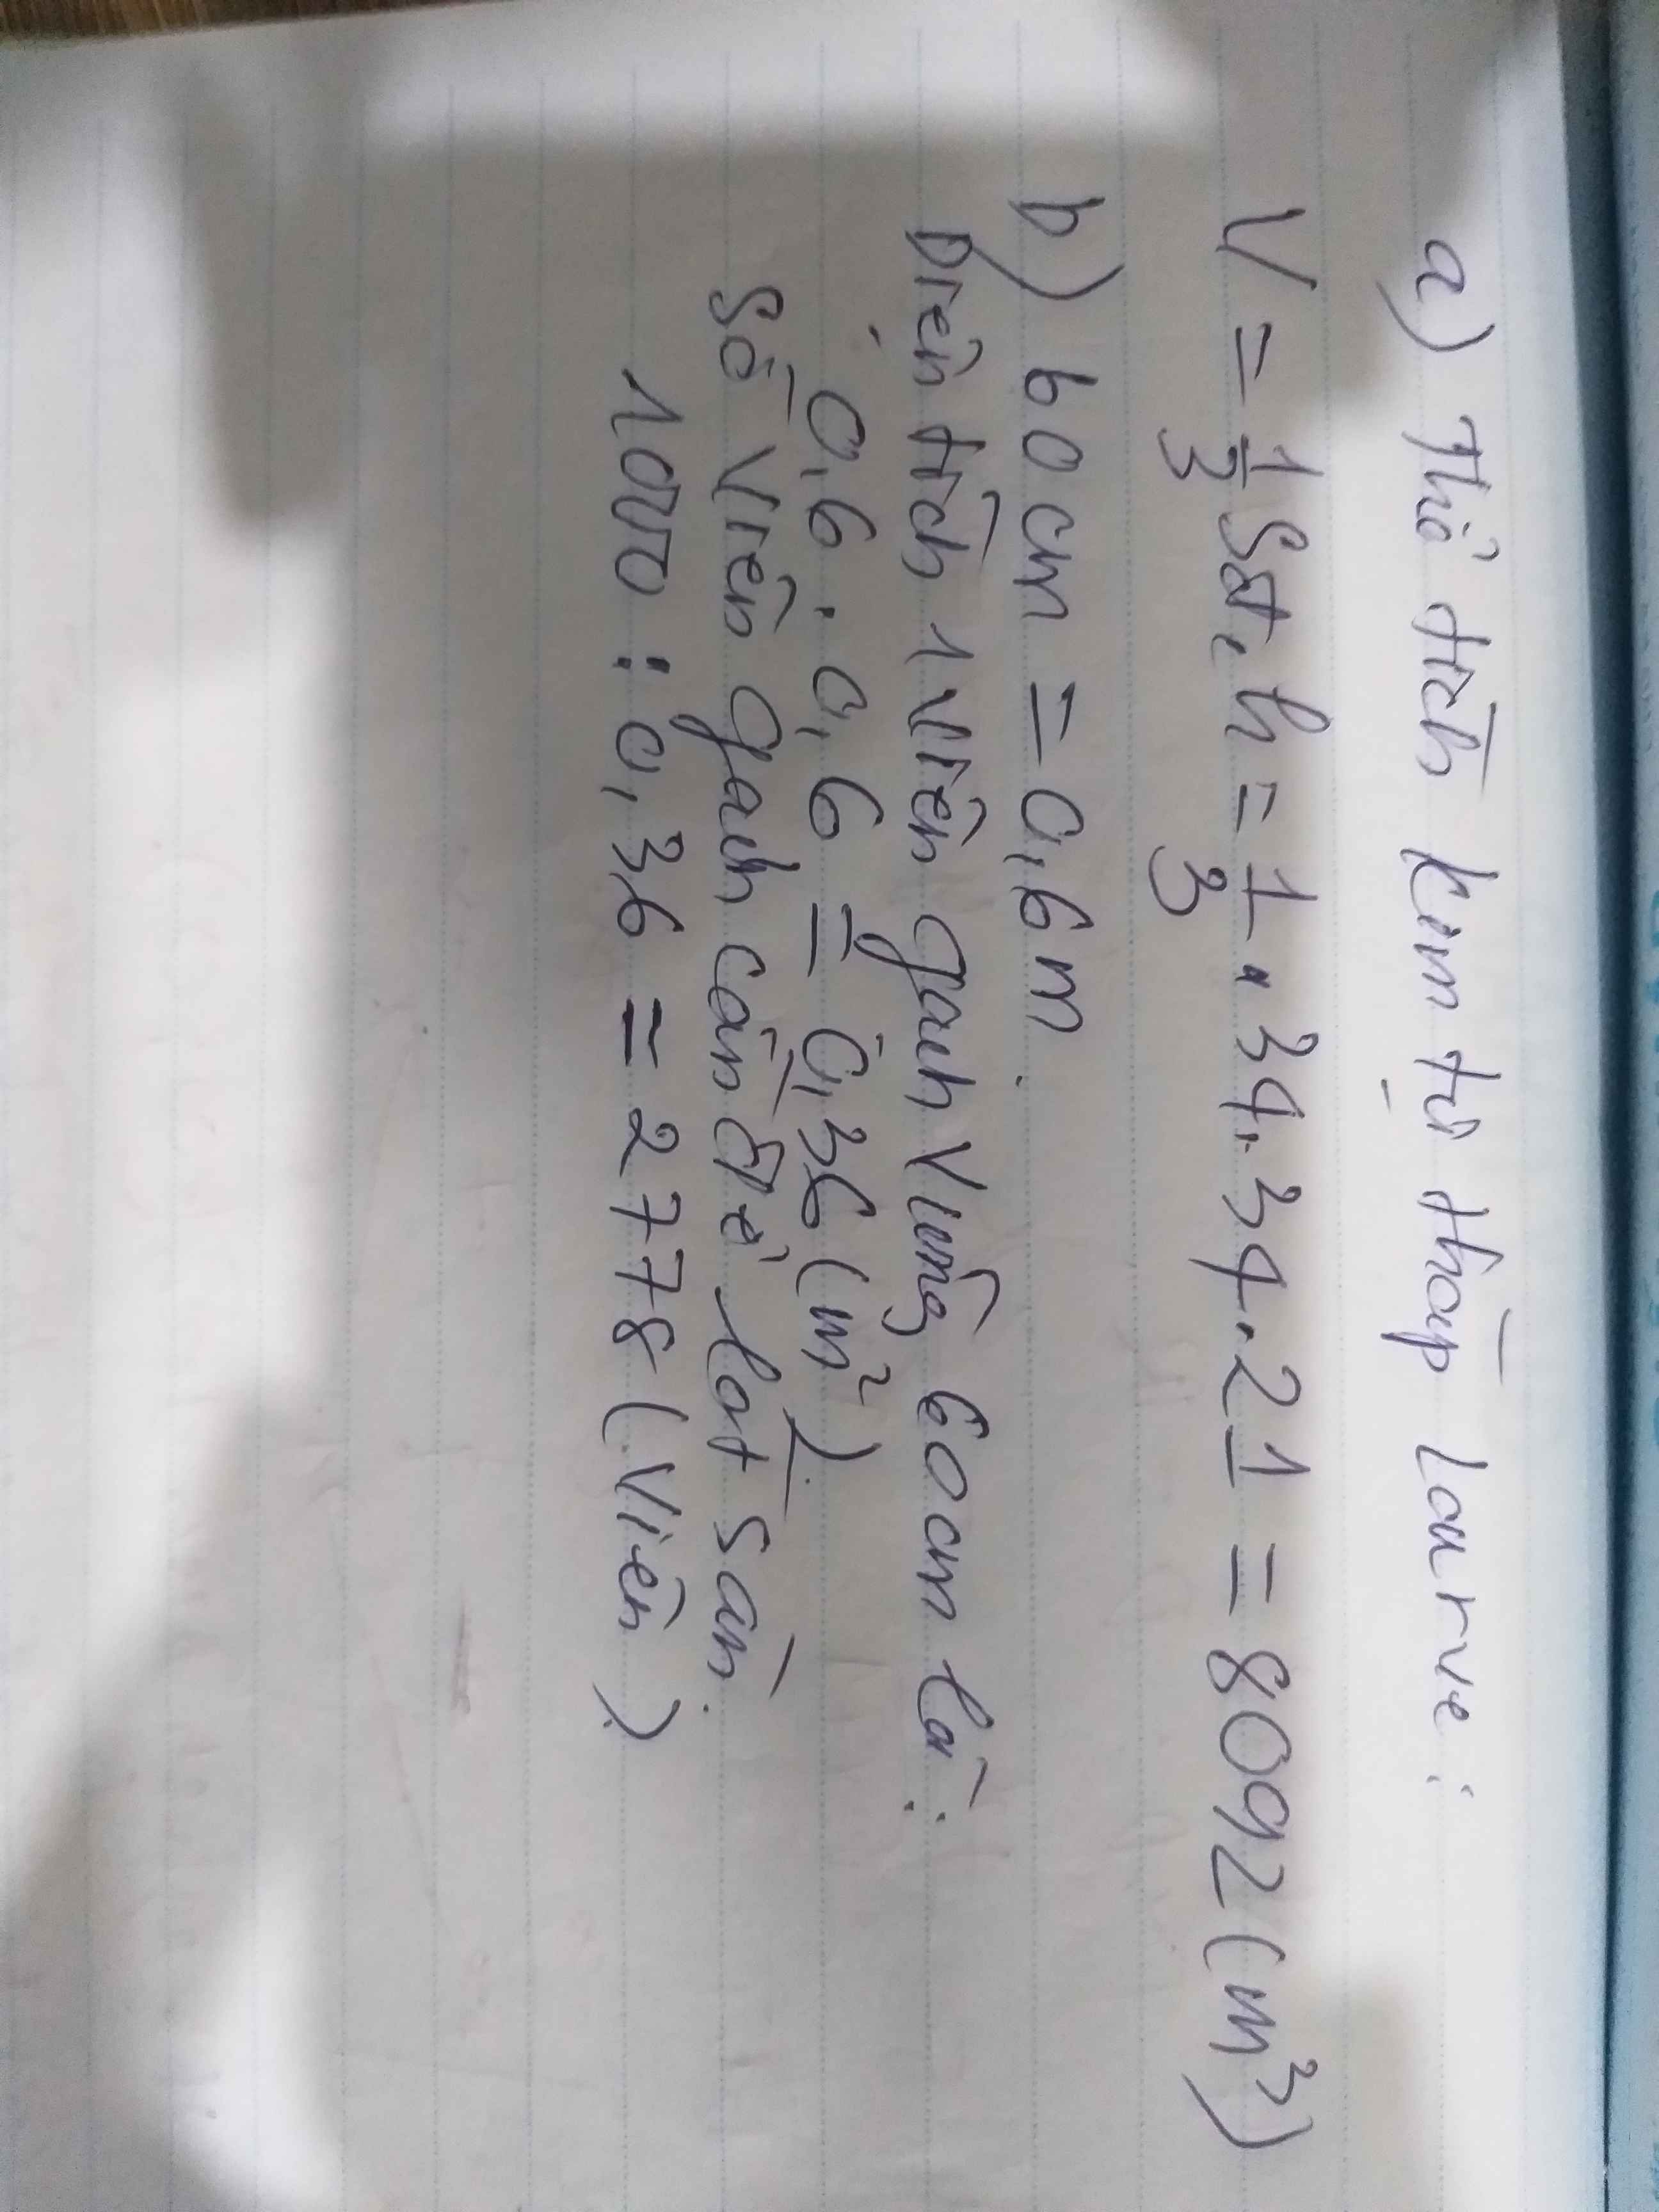 a) Thể tích kim tự tháp Lourve:
V = 1/3 Sđ.h = 1/3 . 34.34.21 = 8092 (m³)
b) 60 cm = 0,6 m.
Diện tích 1 viên gạch vuông 60cm là:
0,6 . 0,6 = 0,36 (m²)
Số viên gạch cần để lót sàn:
1000 : 0,36 = 2778 (viên)